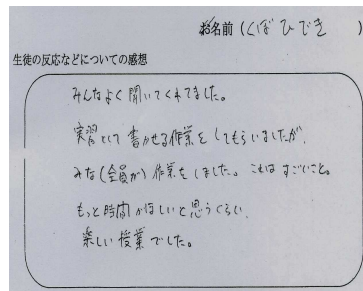 お名前 (くぼひでき)
生徒の反応などについての感想
みんなよく聞いてくれてました。
実習として書かせる作業をしてもらいましたが、
みな(全員が)作業をしました。これはすごいこと。
もっと時間がほしいと思うくらい、
楽しい授業でした。